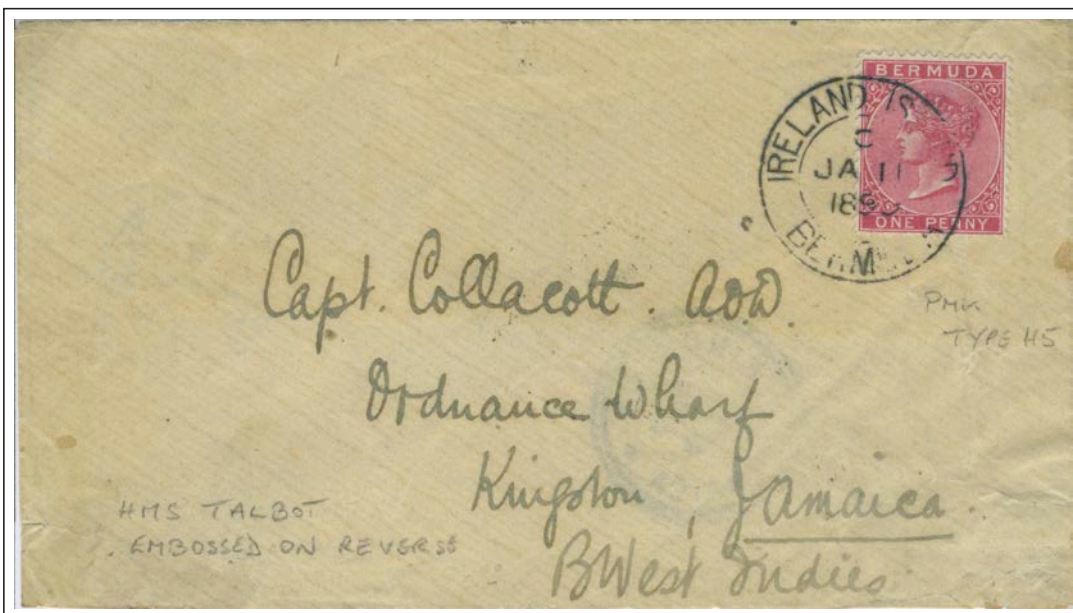 BERMUDA
ONE PENNY
IRELAND IS
C
JA 11
189
BERM
Capt. Collacott. AOD.
Ordnance Wharf
Kingston, Jamaica.
B West Indies
PMK
TYPE H5
HMS TALBOT
EMBOSSED ON REVERSE